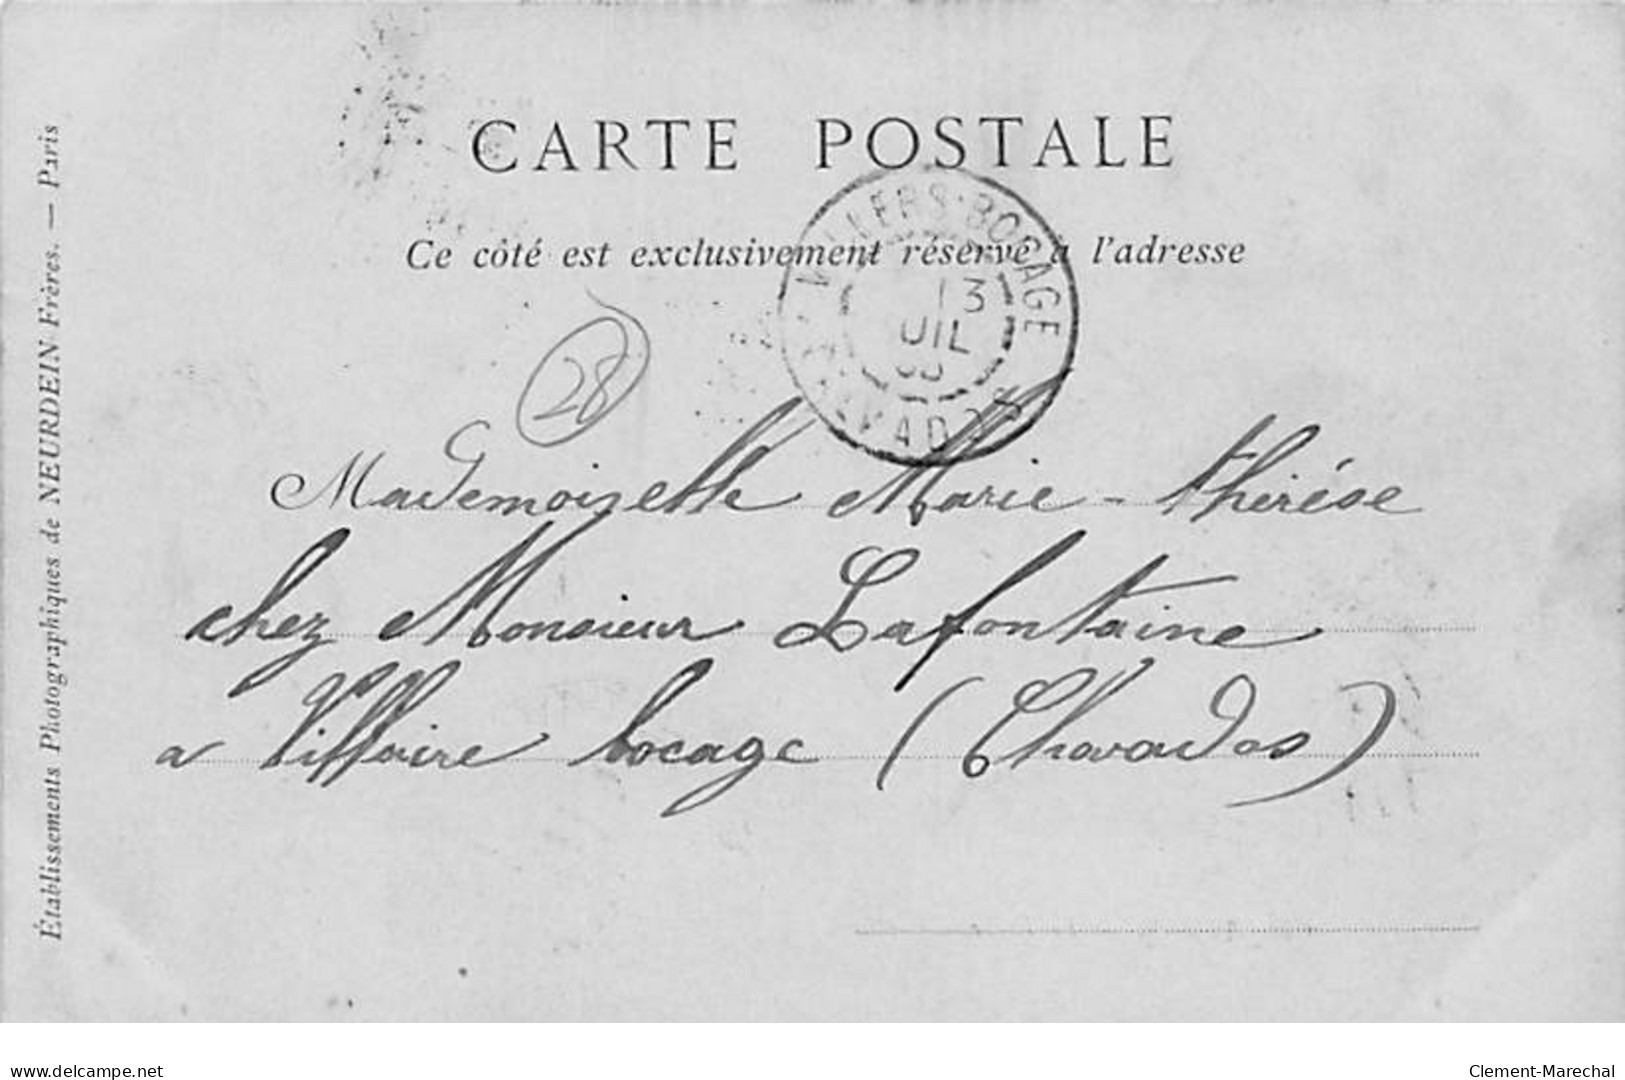 CARTE POSTALE
Ce côté est exclusivement réservé à l'adresse
VILLERS-BOCAGE
13
JUIL
CALVADOS
28
Mademoiselle Marie-thérése
chez Monsieur Lafontaine
a Villaire bocage (Chavados)
Établissements Photographiques de NEURDEIN Frères. — Paris
www.delcampe.net
Clement-Marechal